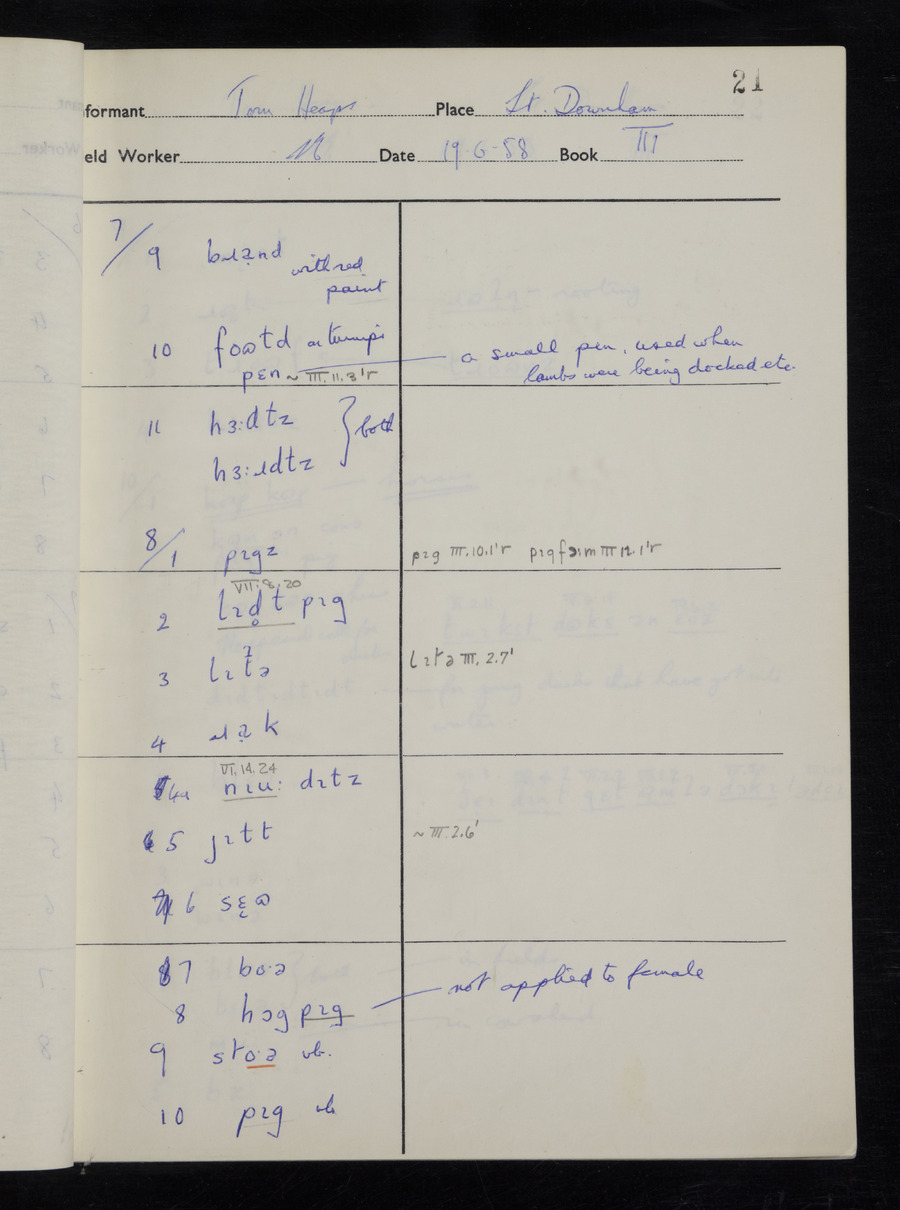 21
formant Tom Heaps Place Lt. Downham
eld Worker Date 19-6-58 Book III
7/9 bɹạnd with red
paint
10 foɷtd or turnips
pɛn ~ III.11.3'r a small pen, used when
lambs were being docked etc.
11 hɜ:dɪz } both
hɜ:ɹdɪz
8/1 pɪgz pɪg III.10.1'r pɪgfɔ:m III 12.1'r
VII.8.20
2 lɪd̥t pɪg
3 lɪtə lɪtə III. 2.7'
4 ɹạk
VI.14.24
4a nɪu: dɪtz
5 jɪtt ~ III.2.6'
6 sɛ̣ɷ
7 bo·ə
8 hɔg pɪg not applied to female
9 sto·ə vb.
10 pɪg vb